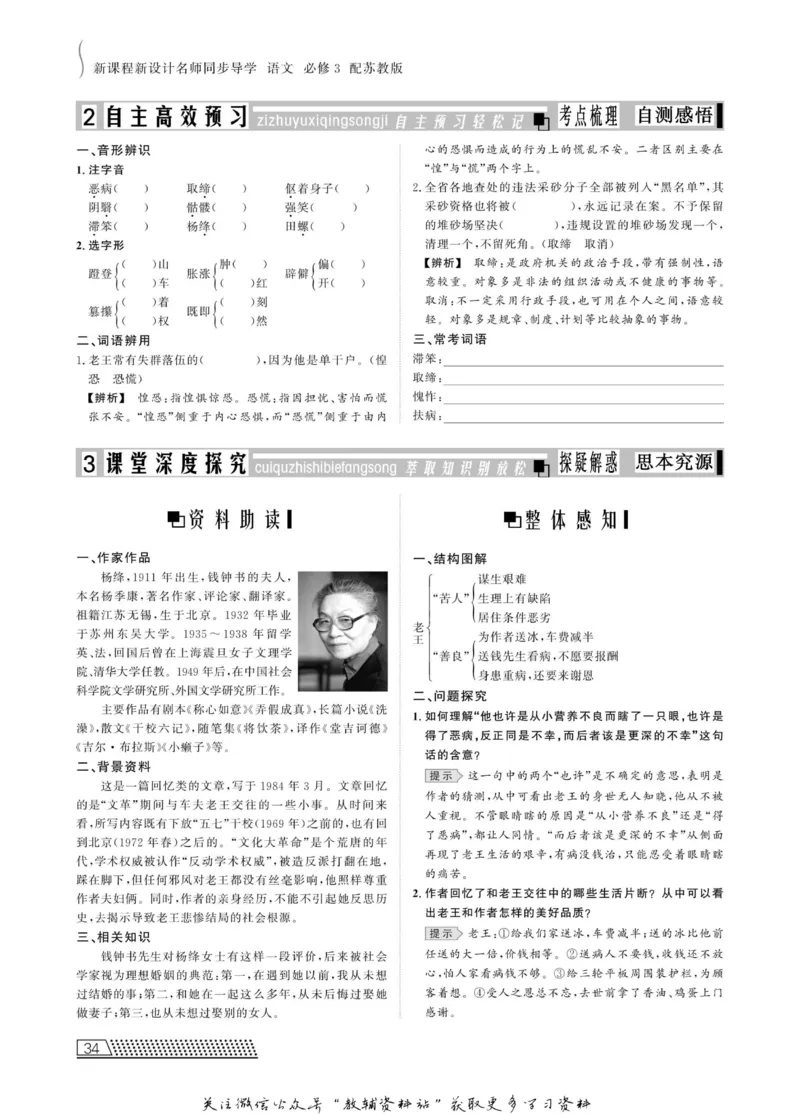 新课程新设计名师同步导学 语文 必修3 配苏教版
2 自主高效预习 zizhuyuxiqingsongji 自主预习轻松记 考点梳理 自测感悟
一、音形辨识
1. 注字音
恶病( ) 取缔( ) 伛着身子( )
阴翳( ) 骷髅( ) 强笑( )
滞笨( ) 杨绛( ) 田螺( )
2. 选字形
蹬登{( )山 ( )车 胀涨{肿( ) ( )红 辟僻{偏( ) 开( )
篡攥{( )着 ( )权 既即{( )刻 ( )然
二、词语辨用
1. 老王常有失群落伍的( ),因为他是单干户。(惶
恐 恐慌)
【辨析】 惶恐:指惶惧惊恐。恐慌:指因担忧、害怕而慌
张不安。“惶恐”侧重于内心恐惧,而“恐慌”侧重于由内
心的恐惧而造成的行为上的慌乱不安。二者区别主要在
“惶”与“慌”两个字上。
2. 全省各地查处的违法采砂分子全部被列人“黑名单”,其
采砂资格也将被( ),永远记录在案。不予保留
的堆砂场坚决( ),违规设置的堆砂场发现一个,
清理一个,不留死角。(取缔 取消)
【辨析】 取缔:是政府机关的政治手段,带有强制性,语
意较重。对象多是非法的组织活动或不健康的事物等。
取消:不一定采用行政手段,也可用在个人之间,语意较
轻。对象多是规章、制度、计划等比较抽象的事物。
三、常考词语
滞笨:
取缔:
愧怍:
扶病:
3 课堂深度探究 cuiquzhishibiefangsong 萃取知识别放松 探疑解惑 思本究源
资料助读
一、作家作品
杨绛,1911 年出生,钱钟书的夫人,
本名杨季康,著名作家、评论家、翻译家。
祖籍江苏无锡,生于北京。1932 年毕业
于苏州东吴大学。1935~1938 年留学
英、法,回国后曾在上海震旦女子文理学
院、清华大学任教。1949 年后,在中国社会
科学院文学研究所、外国文学研究所工作。
主要作品有剧本《称心如意》《弄假成真》,长篇小说《洗
澡》,散文《干校六记》,随笔集《将饮茶》,译作《堂吉诃德》
《吉尔·布拉斯》《小癞子》等。
二、背景资料
这是一篇回忆类的文章,写于 1984 年 3 月。文章回忆
的是“文革”期间与车夫老王交往的一些小事。从时间来
看,所写内容既有下放“五七”干校(1969 年)之前的,也有回
到北京(1972 年春)之后的。“文化大革命”是个荒唐的年
代,学术权威被认作“反动学术权威”,被造反派打翻在地,
踩在脚下,但任何邪风对老王都没有丝毫影响,他照样尊重
作者夫妇俩。同时,作者的亲身经历,不能不引起她反思历
史,去揭示导致老王悲惨结局的社会根源。
三、相关知识
钱钟书先生对杨绛女士有这样一段评价,后来被社会
学家视为理想婚姻的典范:第一,在遇到她以前,我从未想
过结婚的事;第二,和她在一起这么多年,从未后悔过娶她
做妻子;第三,也从未想过娶别的女人。
整体感知
一、结构图解
老王
“苦人”
谋生艰难
生理上有缺陷
居住条件恶劣
“善良”
为作者送冰,车费减半
送钱先生看病,不愿要报酬
身患重病,还要来谢恩
二、问题探究
1. 如何理解“他也许是从小营养不良而瞎了一只眼,也许是
得了恶病,反正同是不幸,而后者该是更深的不幸”这句
话的含意?
提示 这一句中的两个“也许”是不确定的意思,表明是
作者的猜测,从中可看出老王的身世无人知晓,他从不被
人重视。不管眼睛瞎的原因是“从小营养不良”还是“得
了恶病”,都让人同情。“而后者该是更深的不幸”从侧面
再现了老王生活的艰辛,有病没钱治,只能忍受着眼睛瞎
的痛苦。
2. 作者回忆了和老王交往中的哪些生活片断?从中可以看
出老王和作者怎样的美好品质?
提示 老王:①给我们家送冰,车费减半;送的冰比他前
任送的大一倍,价钱相等。②送病人不要钱,收钱还不放
心,怕人家看病钱不够。③给三轮平板周围装护栏,为顾
客着想。④受人之恩总不忘,去世前拿了香油、鸡蛋上门
感谢。
34
关注微信公众号“教辅资料站”获取更多学习资料